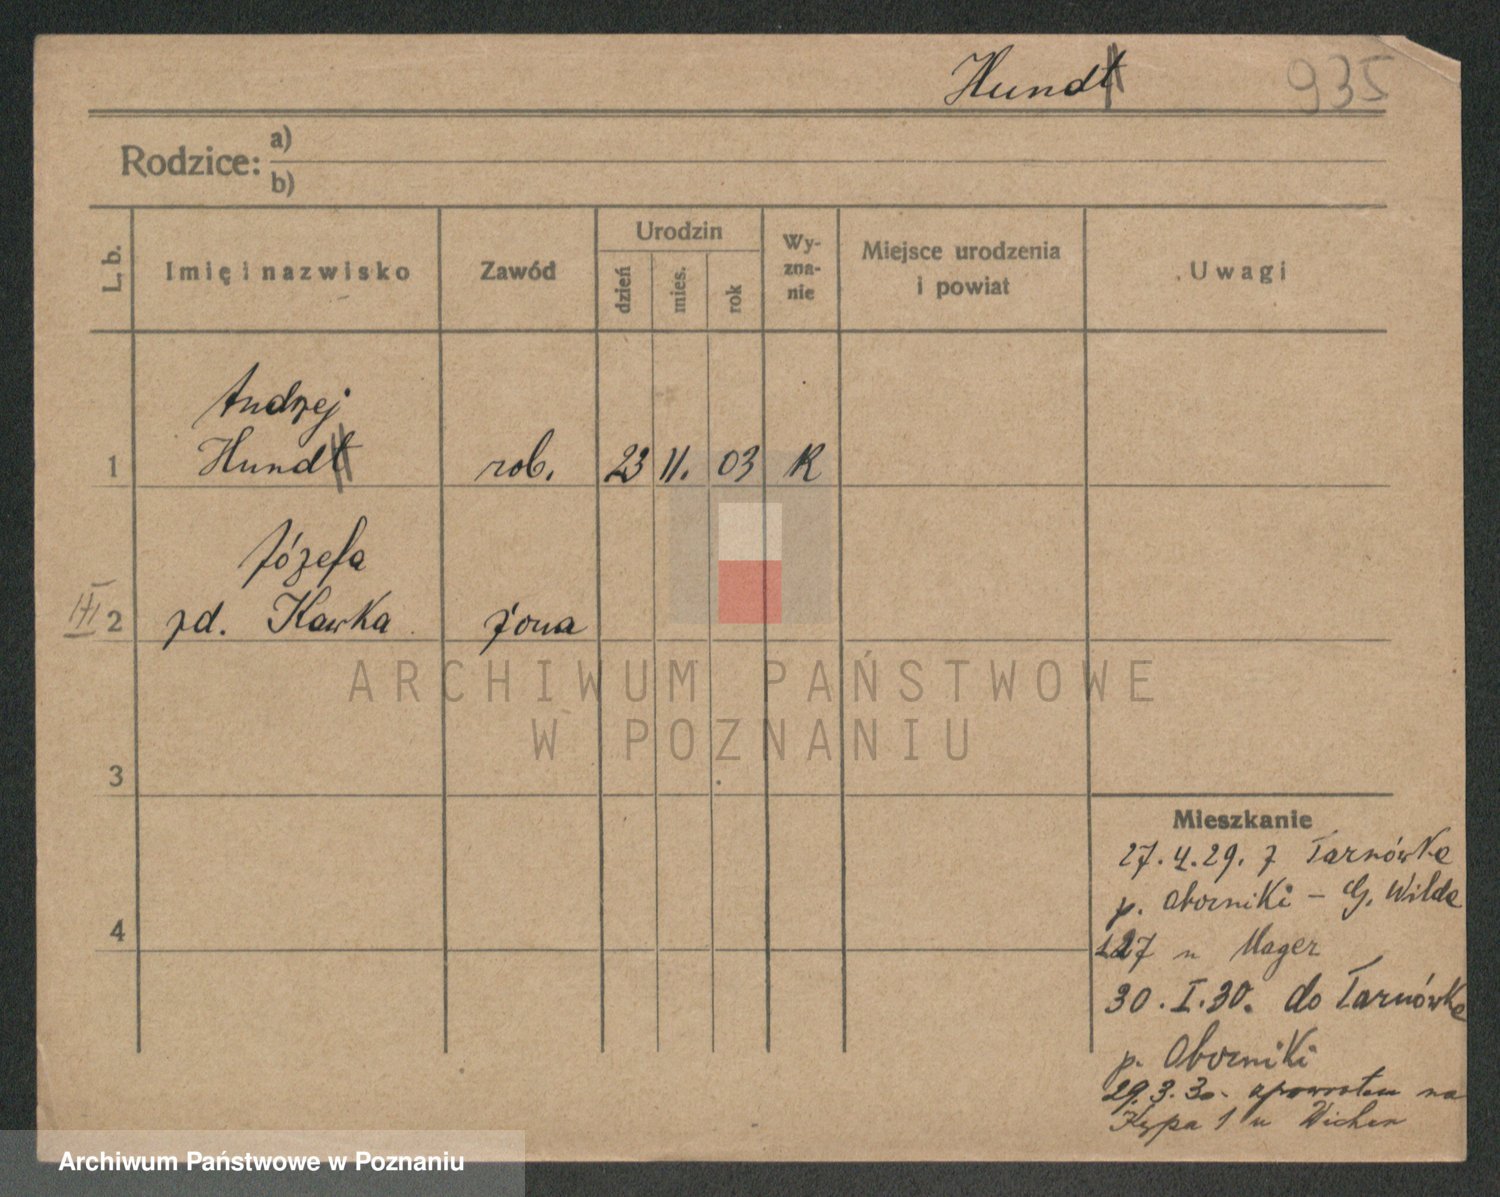 Hundt 935
Rodzice: a)
b)
L. b. Imię i nazwisko Zawód Urodzin Wy-zna-nie Miejsce urodzenia i powiat Uwagi
dzień mies. rok
Andrzej
1 Hundt rob. 23 11. 03 R
Józefa
III 2 zd. Kawka żona
ARCHIWUM PAŃSTWOWE
W POZNANIU
3
Mieszkanie
27.4.29. z Tarnówke
4 p. Oborniki – G. Wilda
127 u Mager
30.I.30. do Tarnówke
p. Oborniki
29.3.30. zpowrotem na
Kępa 1 u Wicher
Archiwum Państwowe w Poznaniu